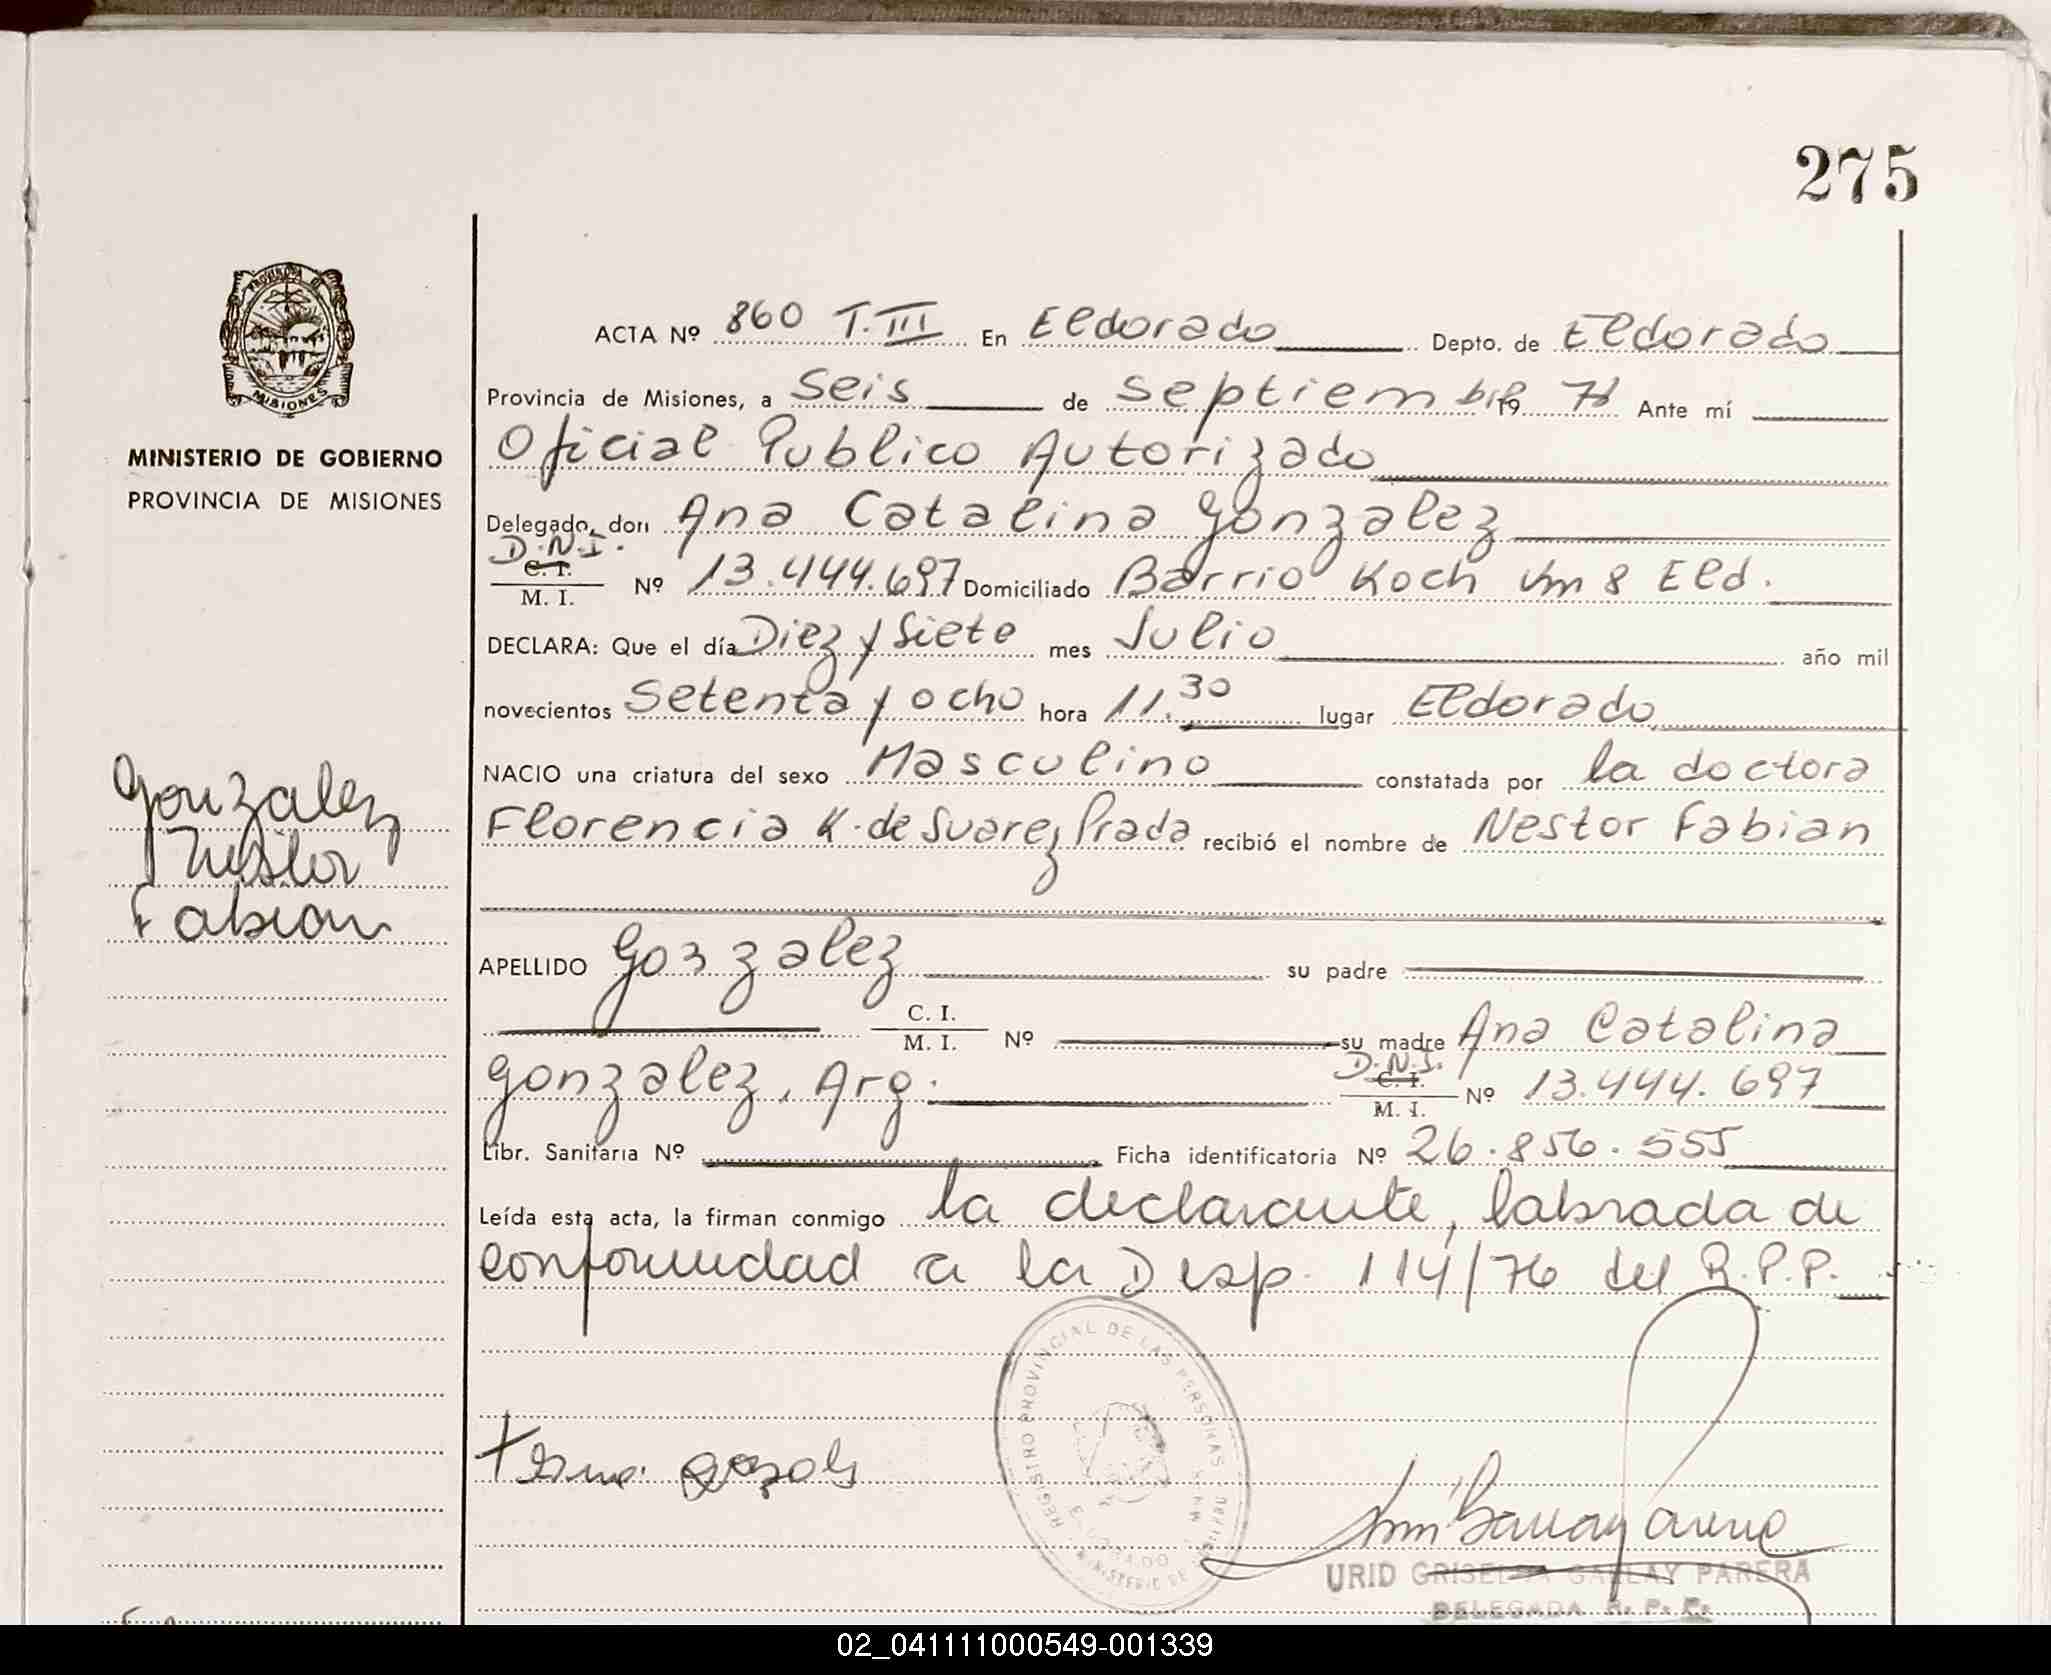 275
PROVINCIA DE
MISIONES
MINISTERIO DE GOBIERNO
PROVINCIA DE MISIONES
Gonzalez
Nestor
Fabian
ACTA Nº 860 T.III En Eldorado Depto. de Eldorado
Provincia de Misiones, a Seis de Septiembre 19 78 Ante mí
Oficial Publico Autorizado
Delegado, don Ana Catalina Gonzalez
D.N.I. C. I. M. I. Nº 13.444.697 Domiciliado Barrio Koch Km 8 Eld.
DECLARA: Que el día Diez y Siete mes Julio año mil
novecientos Setenta y ocho hora 11.30 lugar Eldorado
NACIO una criatura del sexo Masculino constatada por la doctora
Florencia K. de Suarez Prada recibió el nombre de Nestor Fabian
APELLIDO Gonzalez su padre
C. I. M. I. Nº su madre Ana Catalina
Gonzalez, Arg. D.N.I. C. I. M. I. Nº 13.444.697
Libr. Sanitaria Nº Ficha identificatoria Nº 26.856.555
Leída esta acta, la firman conmigo la declarante, labrada de
conformidad a la Disp. 114/76 del R.P.P.
REGISTRO PROVINCIAL DE LAS PERSONAS
ELDORADO
MINISTERIO DE
URID GRISELDA GALLAY PARERA
DELEGADA R. P. P.
02_041111000549-001339